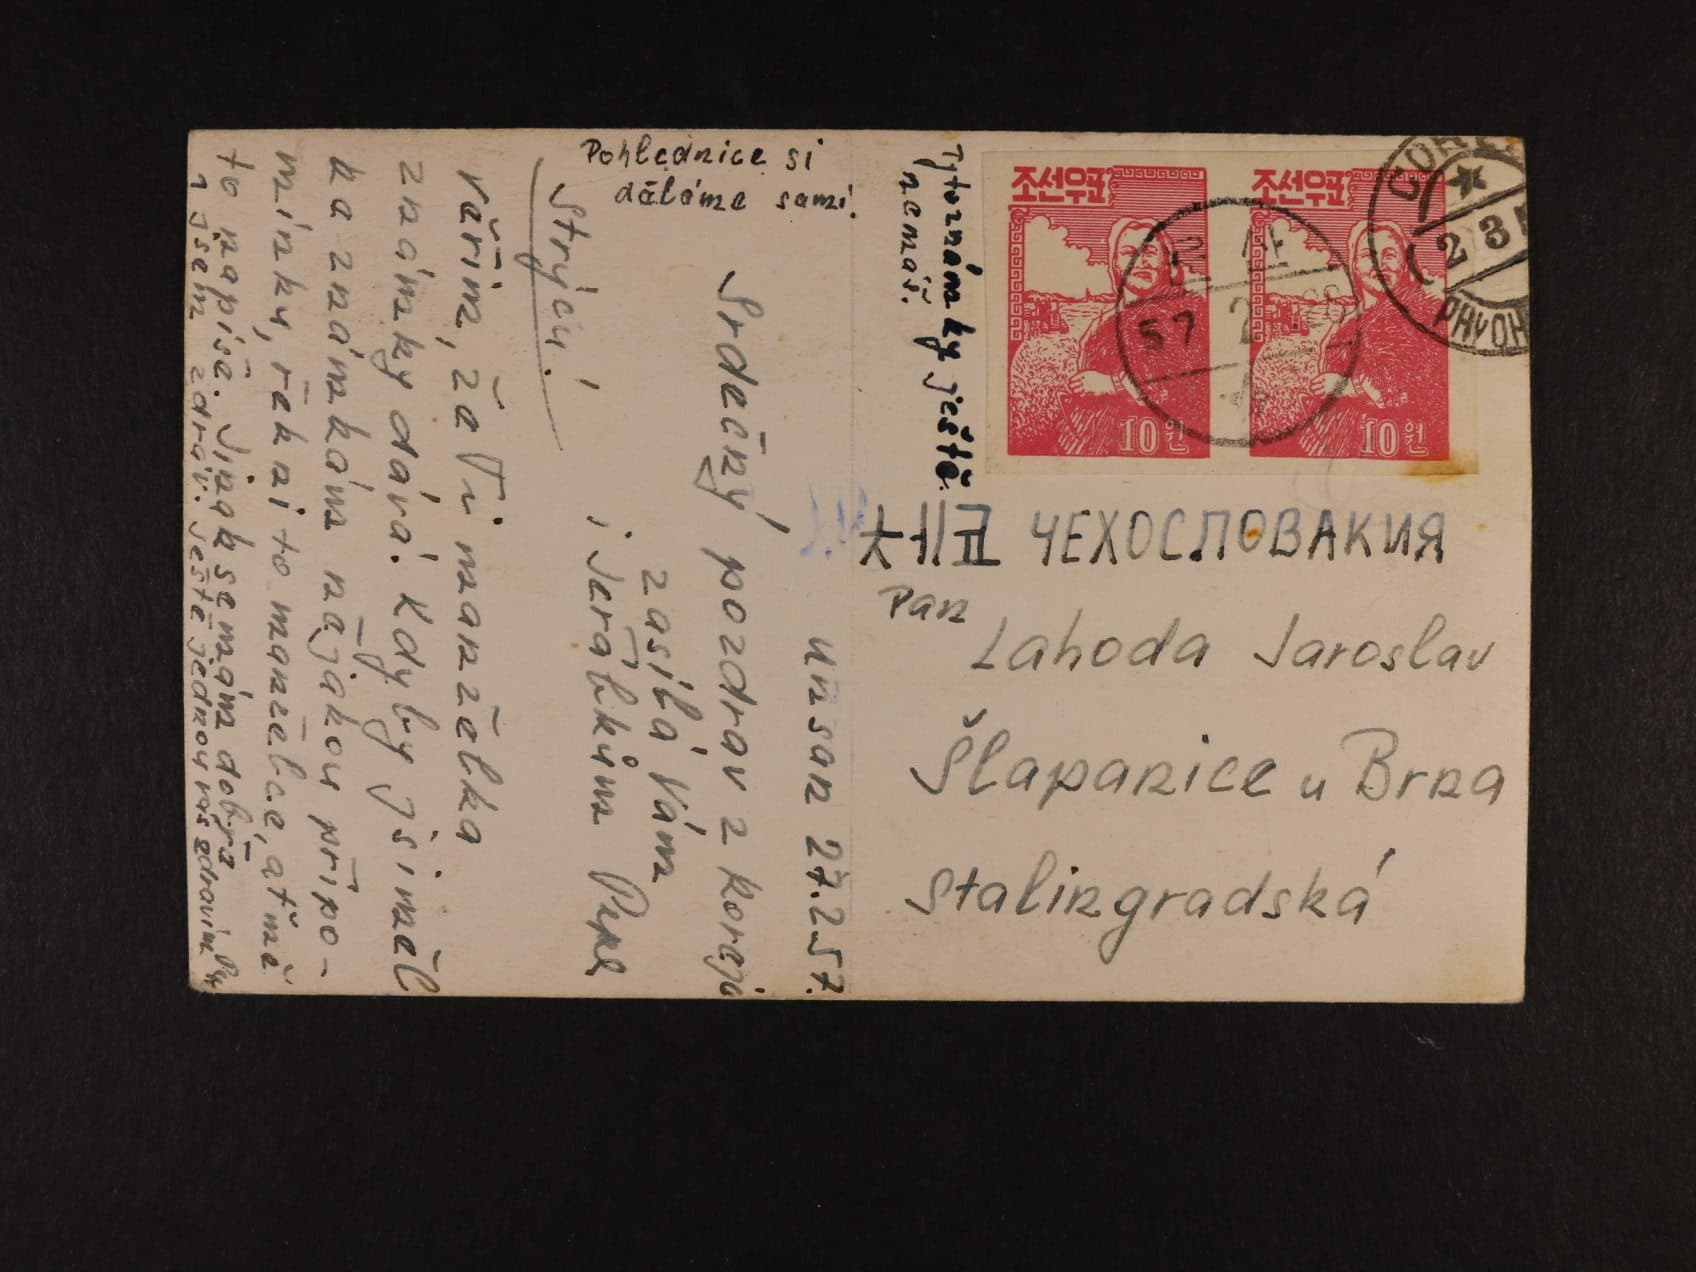 Pohlednice si
děláme sami!
Tyto známky ještě
nemáš.
조선우표
10 원
조선우표
10 원
57 2
KOREA
2 3
PHYON
체코 ЧЕХОСЛОВАКИЯ
Pan
Lahoda Jaroslav
Šlapanice u Brna
Stalingradská
Unsan 27.2.57.
Srdečný pozdrav z Koreje
zasílá Vám
i Jeřábkům
Strýcu!
Věřím, že Ti manželka
známky dává. Kdyby jsi měl
ka známkám nějakou připo-
mínku, řekni to manželce, ať mě
to napíše. Jinak se mám dobře
a jsem zdráv. Ještě jednou vás zdravím